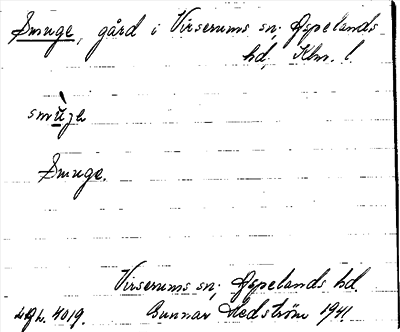 Smuge, gård i Virserums sn; Aspelands
hd, Klm. l.
smùgə
Smuge.
Virserums sn; Aspelands hd.
4019. Gunnar Hedström 1941